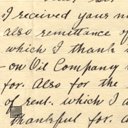 I received your n
also remittance of
which I thank
on Oil Company
for. Also for the
of rent. which I a
thankful for. a